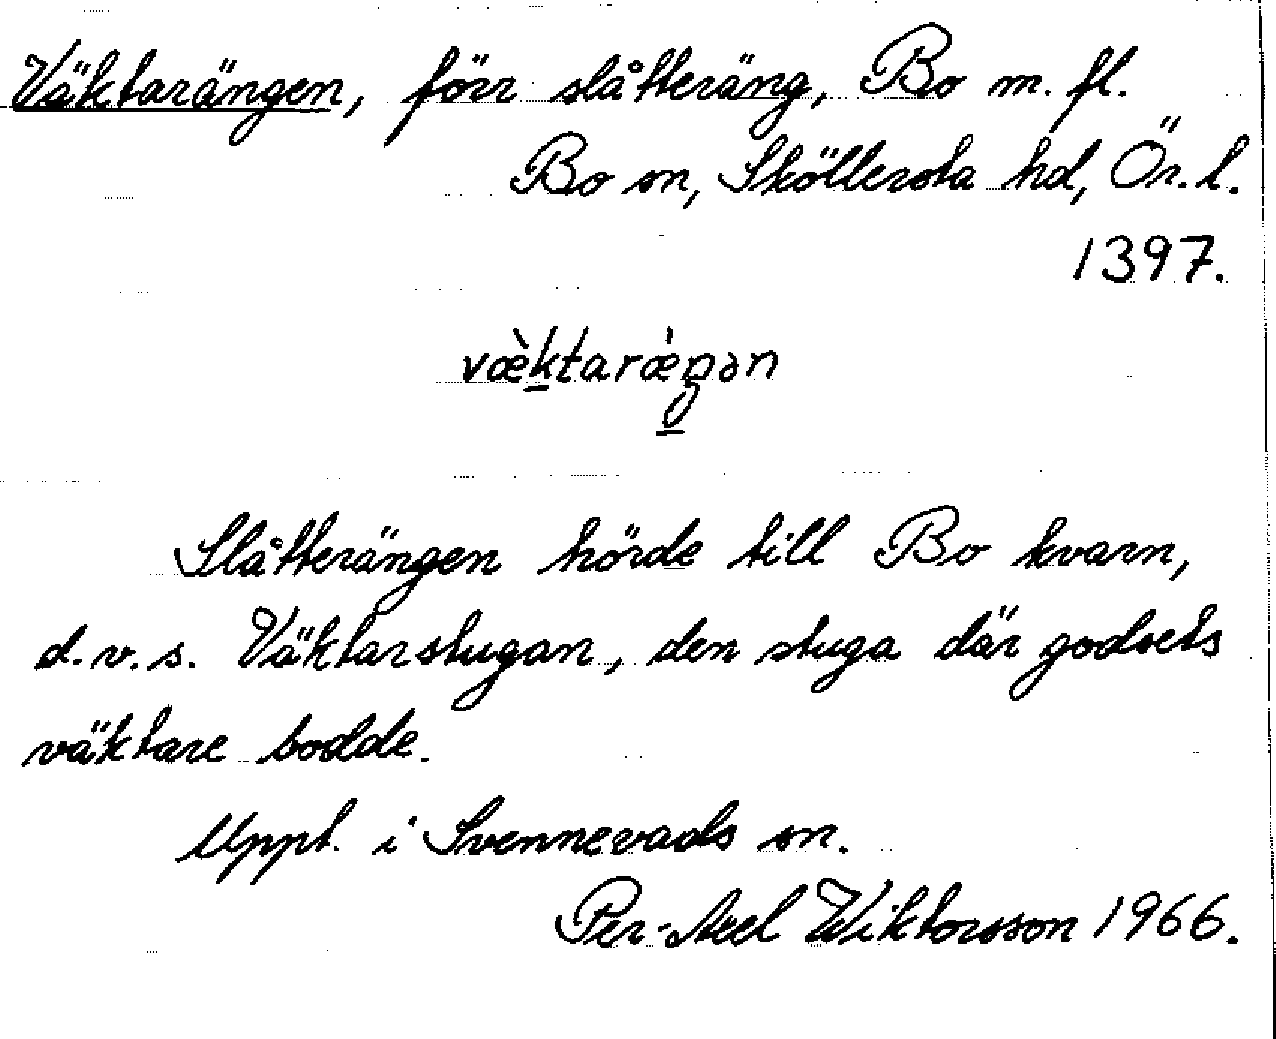 Väktarängen, förr slåtteräng, Bo m. fl.
Bo sn, Sköllersta hd, Ör. l.
1397.
væ̀ktaræ̀ŋən
Slåtterängen hörde till Bo kvarn,
d.v.s. Väktarstugan, den stuga där godsets
väktare bodde.
Uppt. i Svennevads sn.
Per-Axel Wiktorsson 1966.